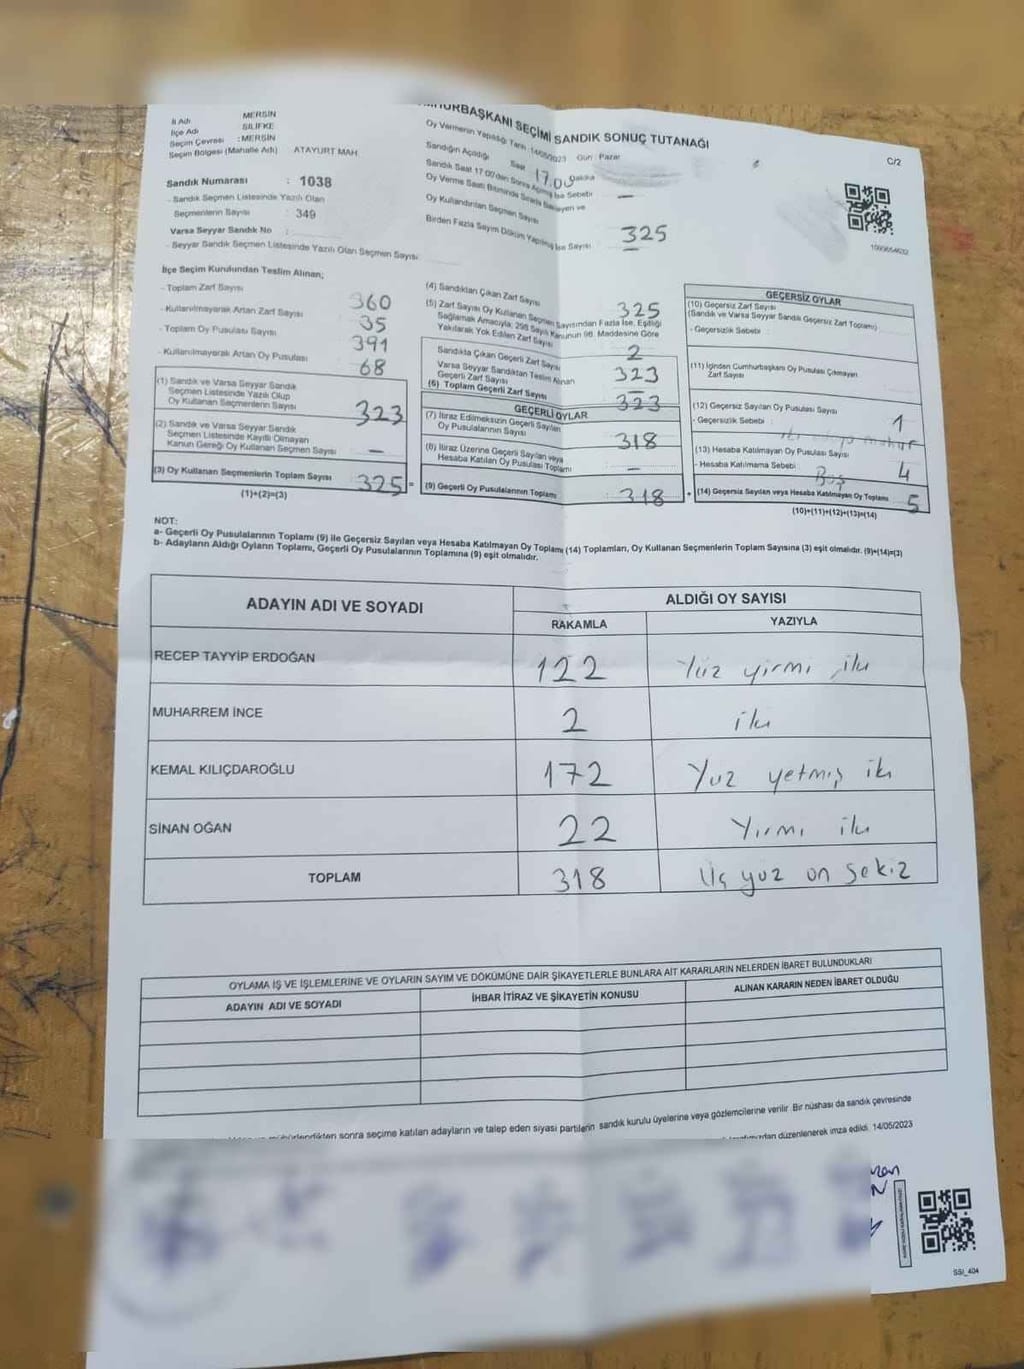 MHURBAŞKANI SEÇİMİ SANDIK SONUÇ TUTANAĞI
C/2
İl Adı MERSİN
İlçe Adı SİLİFKE
Seçim Çevresi : MERSİN
Seçim Bölgesi (Mahalle Adı) ATAYURT MAH.
Sandık Numarası : 1038
Sandık Seçmen Listesinde Yazılı Olan
Seçmenlerin Sayısı : 349
Varsa Seyyar Sandık No :
- Seyyar Sandık Seçmen Listesinde Yazılı Olan Seçmen Sayısı
Oy Vermenin Yapıldığı Tarih : 14/05/2023 Gün : Pazar
Sandığın Açıldığı Saat 17.00 Dakika
Sandık Saat 17.00'den Sonra Açılmış İse Sebebi —
Oy Verme Saati Bitiminde Sırada Bekleyen ve
Oy Kullandırılan Seçmen Sayısı 325
Birden Fazla Sayım Döküm Yapılmış İse Sayısı —
1009654632
İlçe Seçim Kurulundan Teslim Alınan;
- Toplam Zarf Sayısı 360
- Kullanılmayarak Artan Zarf Sayısı 35
- Toplam Oy Pusulası Sayısı 391
- Kullanılmayarak Artan Oy Pusulası 68
(1) Sandık ve Varsa Seyyar Sandık
Seçmen Listesinde Yazılı Olup
Oy Kullanan Seçmenlerin Sayısı 323
(2) Sandık ve Varsa Seyyar Sandık
Seçmen Listesinde Kayıtlı Olmayan
Kanun Gereği Oy Kullanan Seçmen Sayısı —
(3) Oy Kullanan Seçmenlerin Toplam Sayısı 325 =
(1)+(2)=(3)
(4) Sandıktan Çıkan Zarf Sayısı 325
(5) Zarf Sayısı Oy Kullanan Seçmen Sayısından Fazla İse, Eşitliği
Sağlamak Amacıyla; 298 Sayılı Kanunun 98. Maddesine Göre
Yakılarak Yok Edilen Zarf Sayısı 2
Sandıkta Çıkan Geçerli Zarf Sayısı 323
Varsa Seyyar Sandıktan Teslim Alınan
Geçerli Zarf Sayısı —
(6) Toplam Geçerli Zarf Sayısı 323
GEÇERLİ OYLAR
(7) İtiraz Edilmeksizin Geçerli Sayılan
Oy Pusulalarının Sayısı 318
(8) İtiraz Üzerine Geçerli Sayılan veya
Hesaba Katılan Oy Pusulası Toplamı —
(9) Geçerli Oy Pusulalarının Toplamı 318 +
GEÇERSİZ OYLAR
(10) Geçersiz Zarf Sayısı
(Sandık ve Varsa Seyyar Sandık Geçersiz Zarf Toplamı)
- Geçersizlik Sebebi
(11) İçinden Cumhurbaşkanı Oy Pusulası Çıkmayan
Zarf Sayısı
(12) Geçersiz Sayılan Oy Pusulası Sayısı 1
- Geçersizlik Sebebi :
(13) Hesaba Katılmayan Oy Pusulası Sayısı 4
- Hesaba Katılmama Sebebi Boş
(14) Geçersiz Sayılan veya Hesaba Katılmayan Oy Toplamı 5
(10)+(11)+(12)+(13)=(14)
NOT:
a- Geçerli Oy Pusulalarının Toplamı (9) ile Geçersiz Sayılan veya Hesaba Katılmayan Oy Toplamı (14) Toplamları, Oy Kullanan Seçmenlerin Toplam Sayısına (3) eşit olmalıdır. (9)+(14)=(3)
b- Adayların Aldığı Oyların Toplamı, Geçerli Oy Pusulalarının Toplamına (9) eşit olmalıdır.
ADAYIN ADI VE SOYADI ALDIĞI OY SAYISI
RAKAMLA YAZIYLA
RECEP TAYYİP ERDOĞAN 122 Yüz yirmi iki
MUHARREM İNCE 2 iki
KEMAL KILIÇDAROĞLU 172 Yuz yetmiş iki
SİNAN OĞAN 22 Yirmi iki
TOPLAM 318 Üç yüz on sekiz
OYLAMA İŞ VE İŞLEMLERİNE VE OYLARIN SAYIM VE DÖKÜMÜNE DAİR ŞİKAYETLERLE BUNLARA AİT KARARLARIN NELERDEN İBARET BULUNDUKLARI
ADAYIN ADI VE SOYADI İHBAR İTİRAZ VE ŞİKAYETİN KONUSU ALINAN KARARIN NEDEN İBARET OLDUĞU
mühürlendikten sonra seçime katılan adayların ve talep eden siyasi partilerin sandık kurulu üyelerine veya gözlemcilerine verilir. Bir nüshası da sandık çevresinde
düzenlenerek imza edildi. 14/05/2023
SSI_404